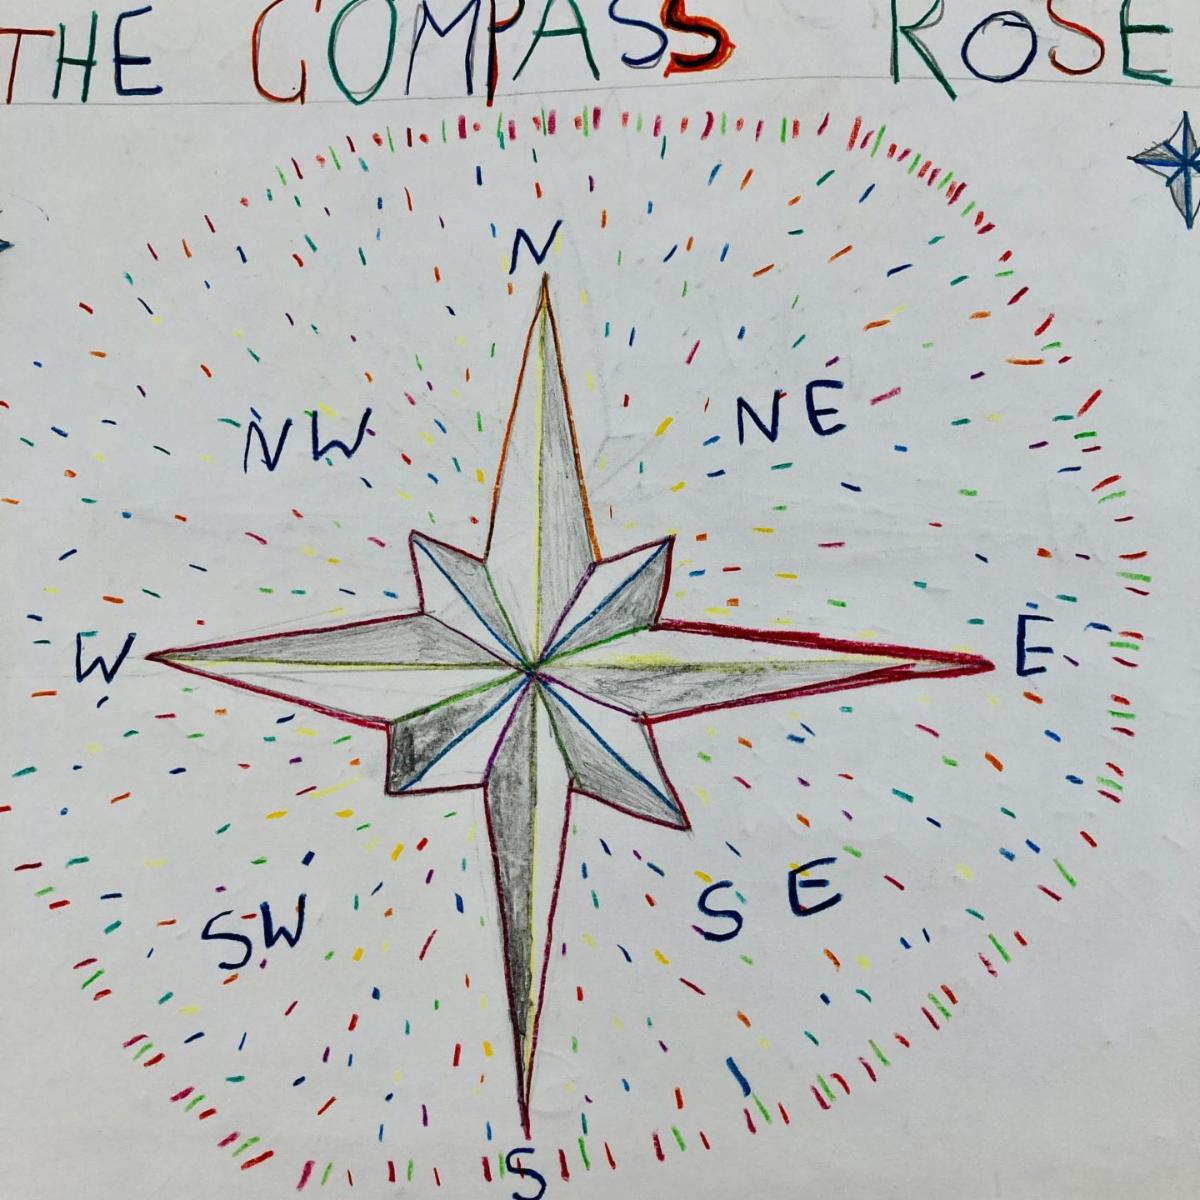 THE COMPASS ROSE
N
NW NE
W E
SW SE
S